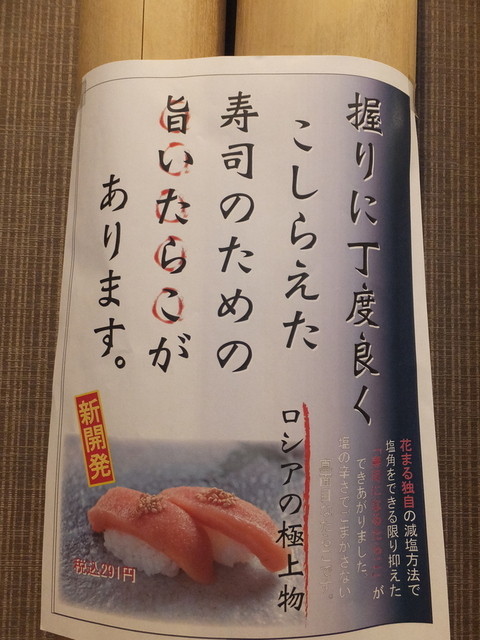 握りに丁度良く
こしらえた
寿司のための
旨いたらこが
あります。
ロシアの極上物
花まる独自の減塩方法で
塩角をできる限り抑えた
が
できあがりました
塩の辛さでごまかさない
新開発
税込291円